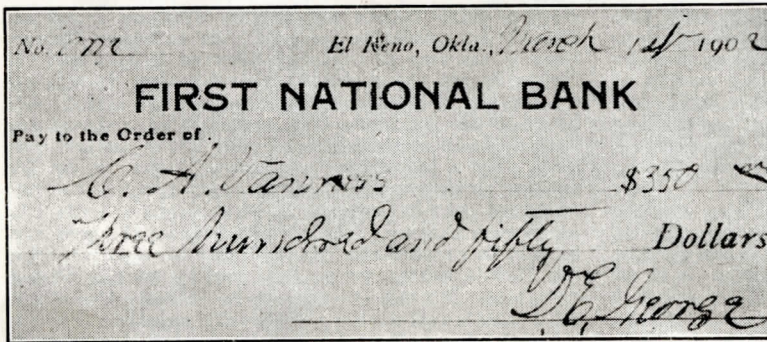 No. one El Reno, Okla., March 1st 1902
FIRST NATIONAL BANK
Pay to the Order of.
C. A. Vanness $350
Three hundred and fifty Dollars
D. E. George